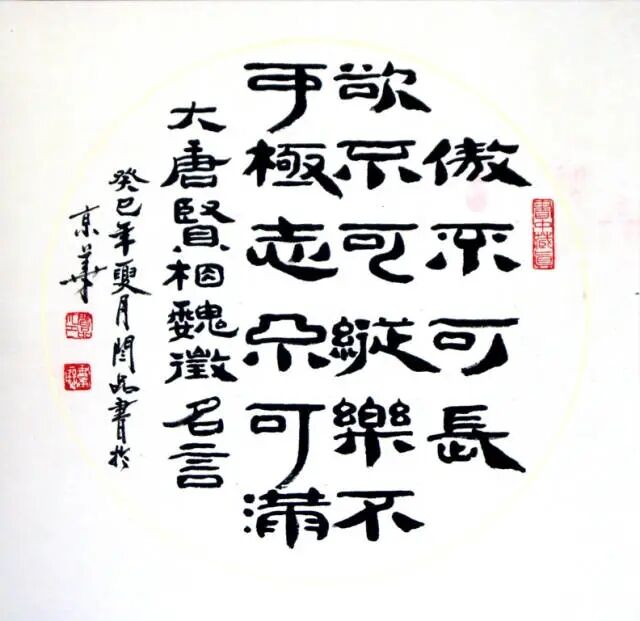 傲不可長
欲不可縱樂不
可極志不可滿
大唐賢相魏徵名言
癸巳年夏月書於
京華